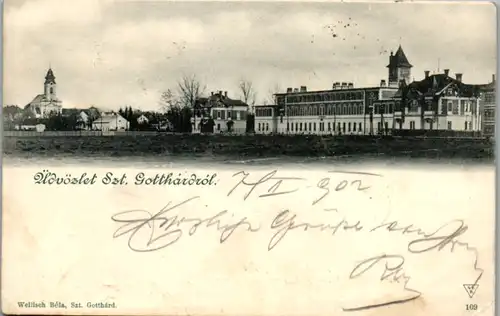 Üdvözlet Szt. Gotthárdról.
7/II 902
Herzliche Grüsse von
Wellisch Béla, Szt. Gotthárd.
169